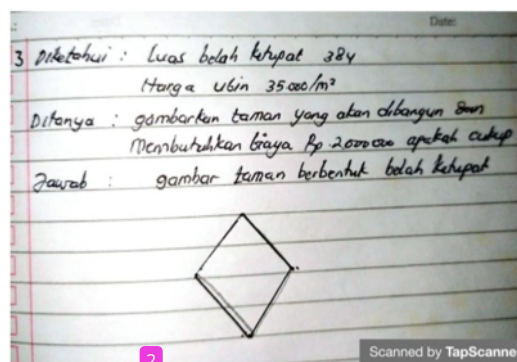 Date:
3 Diketahui : Luas belah ketupat 384
Harga ubin 35.000/m²
Ditanya : gambarkan taman yang akan dibangun
Membutuhkan biaya Rp 2000000 apakah cukup
Jawab : gambar taman berbentuk belah ketupat
2
Scanned by TapScanne